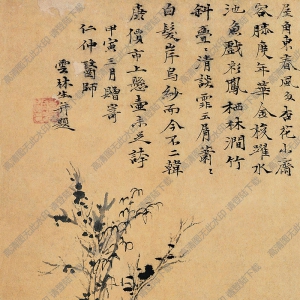 屋角東風多杏花小齋
容膝度年華金梭躍水
池魚戲彩鳳栖林澗竹
斜亹亹清談霏玉屑蕭蕭
白髮岸烏紗而今不二韓
康價市上懸壺未足誇
甲寅三月贈寄
仁仲醫師
雲林生並題